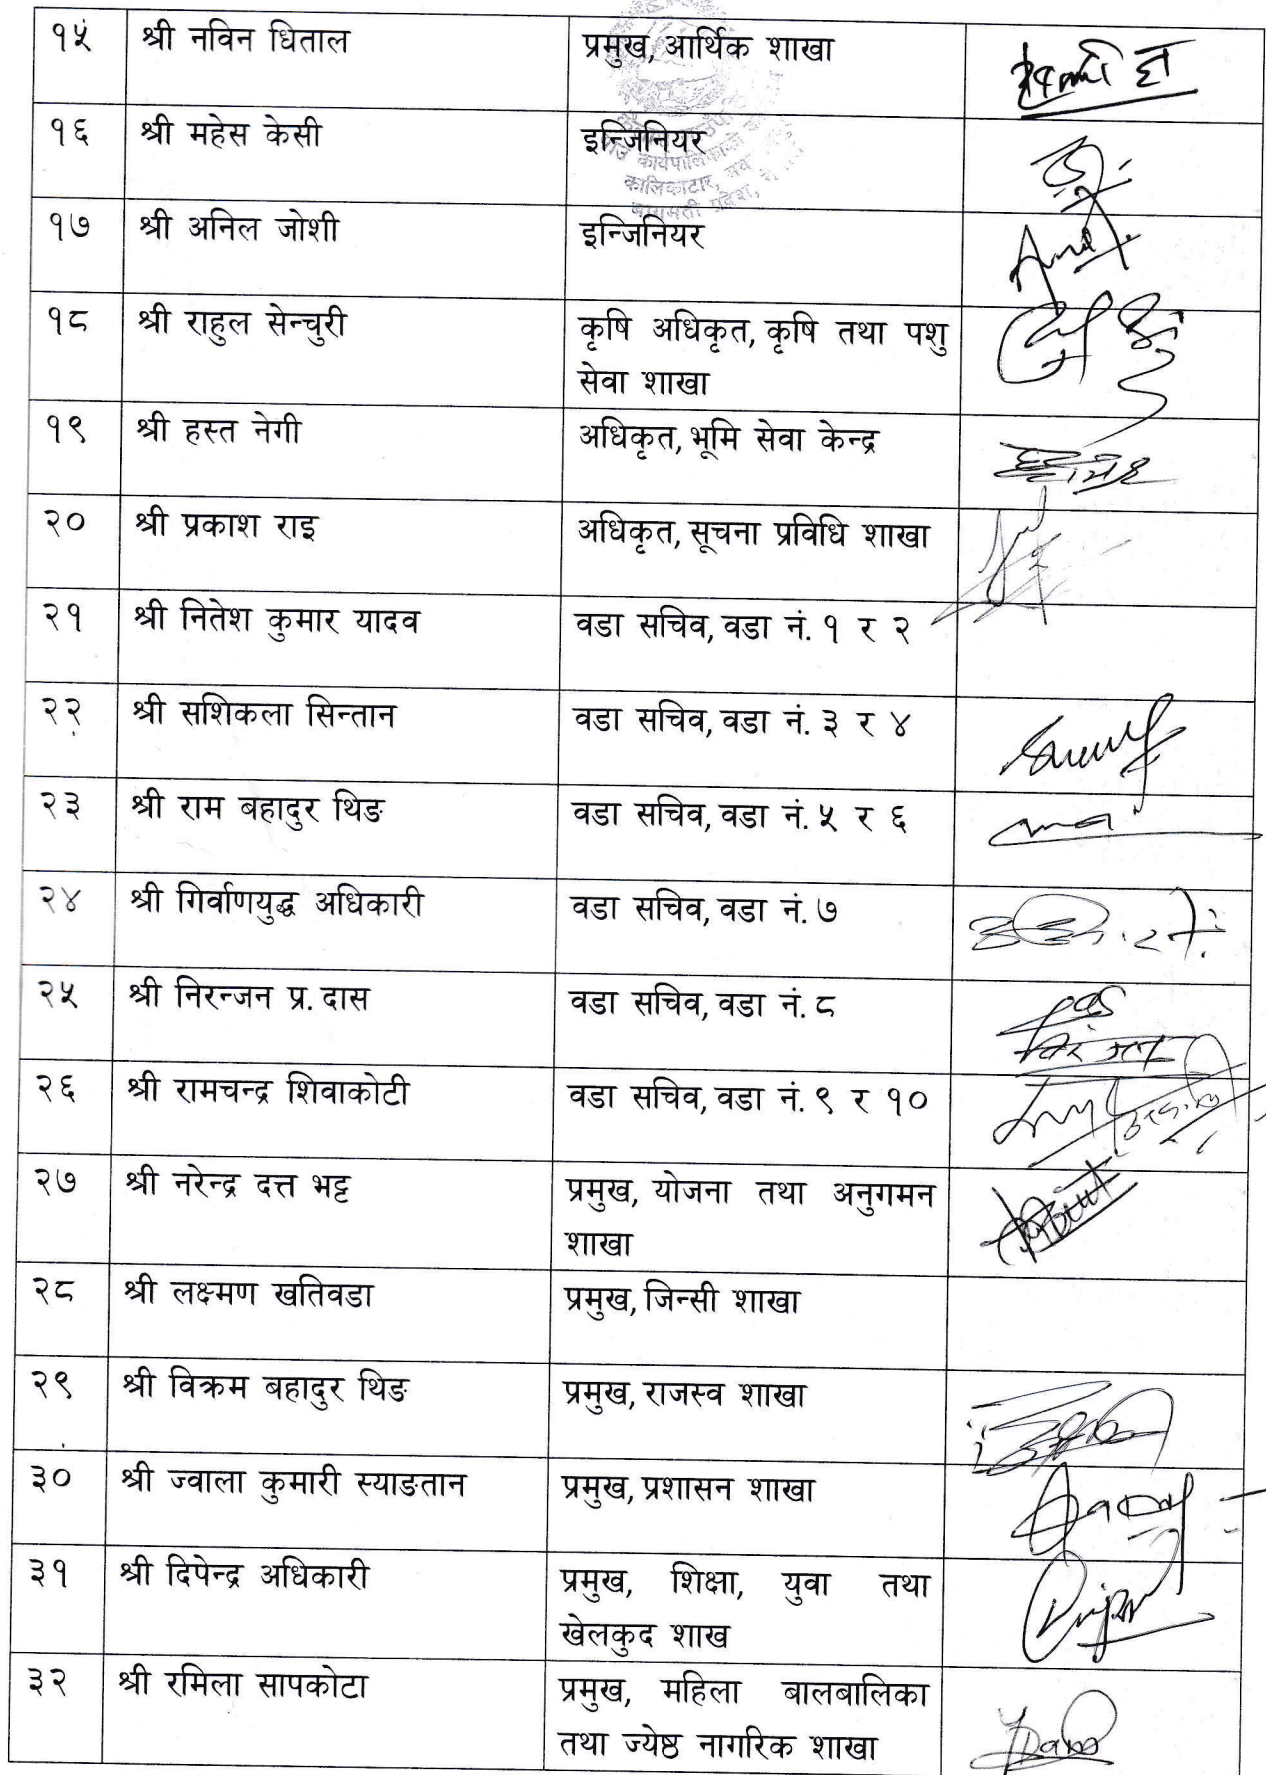 १५ श्री नविन धिताल प्रमुख, आर्थिक शाखा
१६ श्री महेस केसी इन्जिनियर
कार्यपालिकाको
कालिकाटार,
बागमती प्रदेश,
१७ श्री अनिल जोशी इन्जिनियर
१८ श्री राहुल सेन्चुरी कृषि अधिकृत, कृषि तथा पशु
सेवा शाखा
१९ श्री हस्त नेगी अधिकृत, भूमि सेवा केन्द्र
२० श्री प्रकाश राइ अधिकृत, सूचना प्रविधि शाखा
२१ श्री नितेश कुमार यादव वडा सचिव, वडा नं. १ र २
२२ श्री सशिकला सिन्तान वडा सचिव, वडा नं. ३ र ४
२३ श्री राम बहादुर थिङ वडा सचिव, वडा नं. ५ र ६
२४ श्री गिर्वाणयुद्ध अधिकारी वडा सचिव, वडा नं. ७
२५ श्री निरन्जन प्र. दास वडा सचिव, वडा नं. ८
२६ श्री रामचन्द्र शिवाकोटी वडा सचिव, वडा नं. ९ र १०
२७ श्री नरेन्द्र दत्त भट्ट प्रमुख, योजना तथा अनुगमन
शाखा
२८ श्री लक्ष्मण खतिवडा प्रमुख, जिन्सी शाखा
२९ श्री विक्रम बहादुर थिङ प्रमुख, राजस्व शाखा
३० श्री ज्वाला कुमारी स्याङतान प्रमुख, प्रशासन शाखा
३१ श्री दिपेन्द्र अधिकारी प्रमुख, शिक्षा, युवा तथा
खेलकुद शाख
३२ श्री रमिला सापकोटा प्रमुख, महिला बालबालिका
तथा ज्येष्ठ नागरिक शाखा